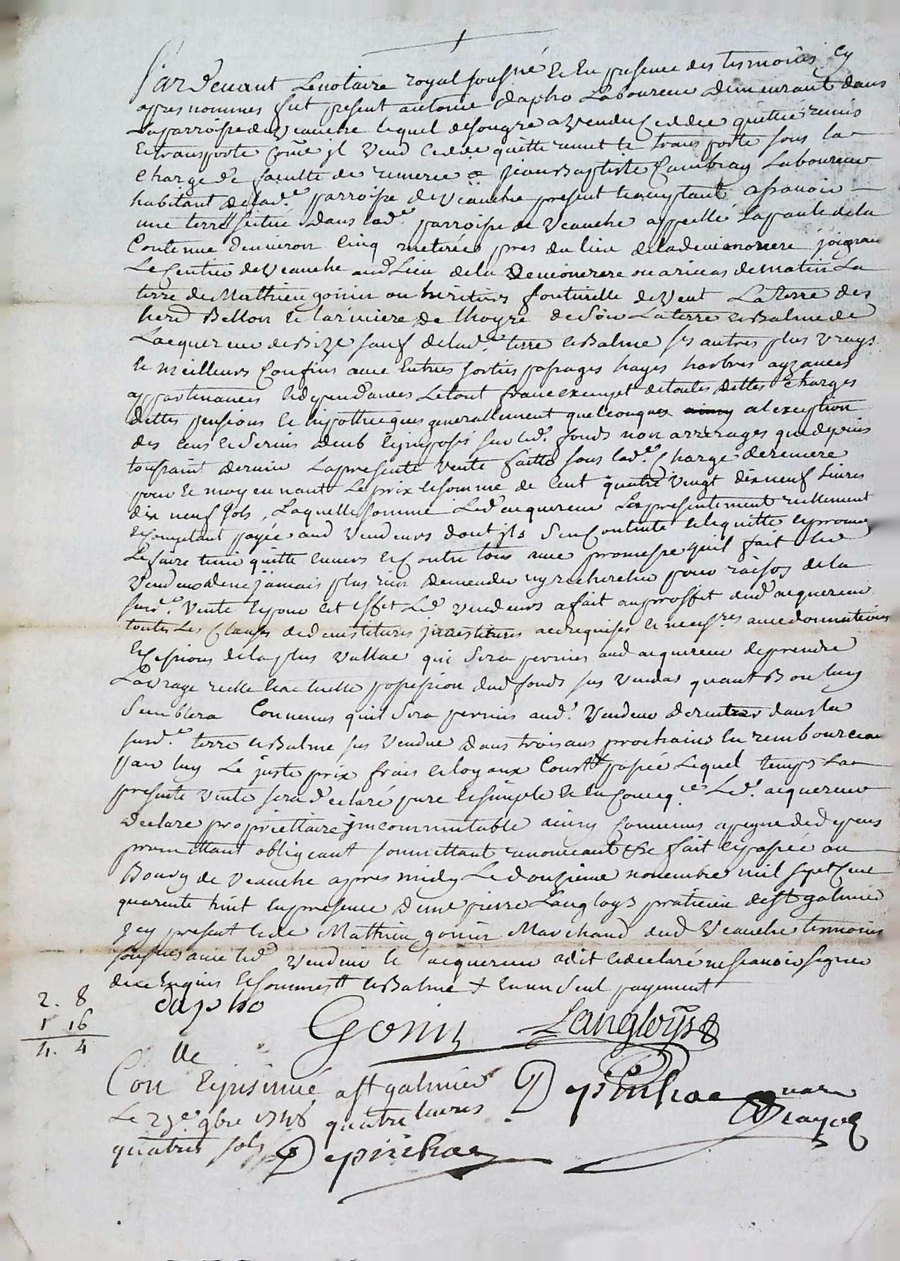 Pardevant Le notaire royal sousné et En presence des tesmoins cy
apres nommes fut present antoine dapho Laboureur Demeurant dans
La parroisse de Veauche lequel de son gre a vendu cedde quitte remis
et transporte Comme jl Vend cedde quitte remet et transporte sous la
Charge de faculte de remerée a jean Baptiste Cambray Laboureur
habitant de lad.e parroisse de Veauche present et acceptant a scavoir
une terre scitué Dans lad.e parroisse de Veauche appellé La de la
Contenue d'environ Cinq metirée pres du lieu de joignan
Le sentier de Veauche au Lieu de la ou de matin La
terre de Mathieu gonin ou heritiers de Vent La terre des
herd Bellon et de soir La terre et Balme de
de Bize sauf de lad.e terre et Balme ses autres plus vrays
et meilleurs Confins avec Entrés sorties passages hayes harbres ayzances
appartenances et dependances Le tout franc exempt de toutes dettes Charges
dettes pensions et hypotheques generallement quelconques a l'exception
des Cens et servis deub et imposés sur led. fonds non arrerages que depuis
toussaint dernier La presente vente faitte sous lad.e Charge de remere
pour et moyennant Le prix et somme de Cent quatre vingt dix neuf Livres
dix neuf sols, Laquelle somme Led. acquereur Les presentement reellement
et Comptant payée aud Vendeurs dont jls s'en Contente et le quitte et promet
Le faire tenir quitte envers et Contre tous avec promesse qu'il fait led
Vendeur de ne jamais plus rien demander ny rechercher pour raison de la
susd.e Vente et pour cet effet Led Vendeurs a fait au proffit dud acquereur
toutes Les Clauses de devestitures jnvestitures ad requises et necess.res avec donnations
et Cessions de la plus vallue qui sera permis aud acquereur de prendre
La vraye reelle et actuelle possession dud fonds sus Vendus quant Bon luy
Semblera Convenus qu'il sera permis aud. Vendeur de rentrer dans la
susd.e terre et Balme sus Vendue Dans trois ans prochains En rembourceans
par luy Le juste prix frais et loyaux Cousts passée Lequel temps La
presente vente sera declaré pure et simple et en Conseq.ce Led. acquereur
Declare proprietaire jncommutable ainsy Convenus a peyne de depens
promettant obligeant soumettant renonceant &c fait et passée au
Bourg de Veauche apres midy Le douzieme novembre mil sept Cent
quarente huit En presence de me pierre Langloys praticien de st galmier
jcy present et de Mathieu gonin Marchand dud Veauche tesmoins
sousnes avec led Vendeur et l'acquereur a dit et declaré ne scavoir signer
de ce Enquis et sommes et Balme + En un seul payement
2. 8
1 16
4. 4
dapho
Gonin
Langloys
Con.lle et jnsinué a st galmier
Le 23e 9bre 1748 quatre Livres
quatre sols
Depinhac
Depinhac